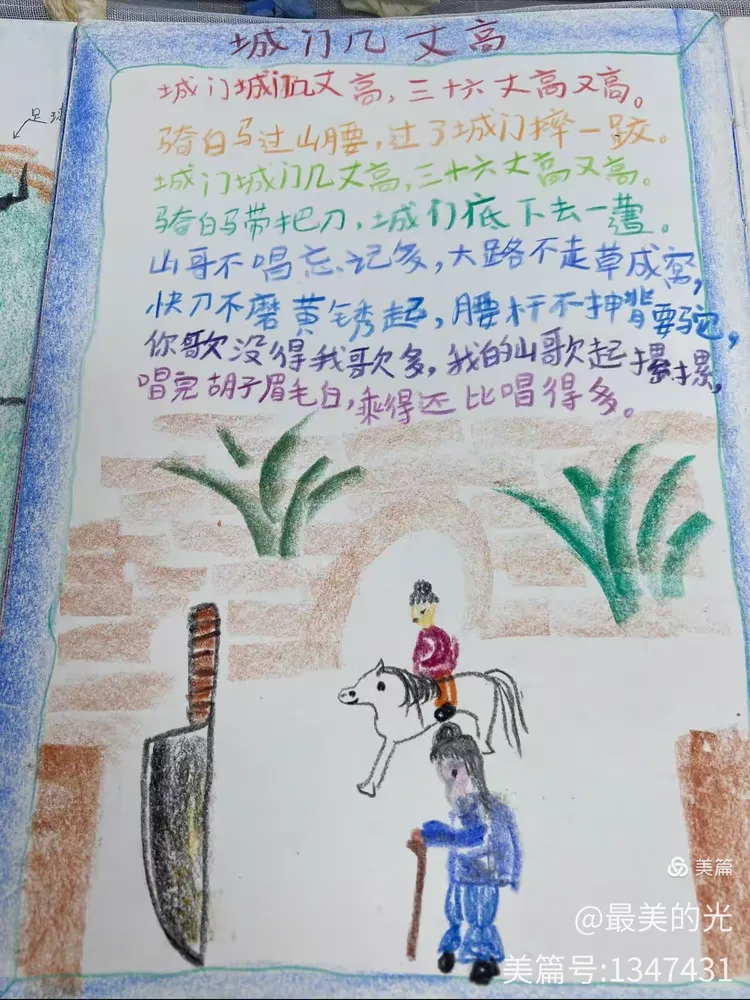 城门几丈高
足球
城门城门几丈高,三十六丈高又高。
骑白马过山腰,过了城门摔一跤。
城门城门几丈高,三十六丈高又高。
骑白马带把刀,城们底下去一遭。
山哥不唱忘记多,大路不走草成窝,
快刀不磨黄锈起,腰杆不抻背要驼,
你歌没得我歌多,我的山歌起摞摞,
唱完胡子眉毛白,乘得还比唱得多。
美篇
@最美的光
美篇号:1347431